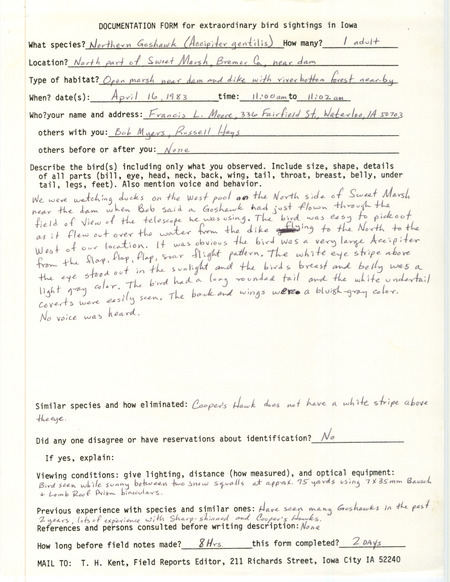 DOCUMENTATION FORM for extraordinary bird sightings in Iowa
What species? Northern Goshawk (Accipiter gentilis) How many? 1 adult
Location? North part of Sweet Marsh, Bremer Co., near dam
Type of habitat? Open marsh near dam and dike with riverbottom forest nearby
When? date(s): April 16, 1983 time: 11:00am to 11:02am
Who?your name and address: Francis L. Moore, 336 Fairfield St, Waterloo, IA 50703
others with you: Bob Myers, Russell Hays
others before or after you: None
Describe the bird(s) including only what you observed. Include size, shape, details
of all parts (bill, eye, head, neck, back, wing, tail, throat, breast, belly, under
tail, legs, feet). Also mention voice and behavior.
We were watching ducks on the West pool on the North side of Sweet Marsh
near the dam when Bob said a Goshawk had just flown through the
field of view of the telescope he was using. The bird was easy to pick out
as it flew out over the water from the dike flying to the North to the
West of our location. It was obvious the bird was a very large Accipiter
from the flap, flap, flap, soar flight pattern. The white eye stripe above
the eye stood out in the sunlight and the birds breast and belly was a
light gray color. The bird had a long rounded tail and the white undertail
coverts were easily seen. The back and wings were a bluish-gray color.
No voice was heard.
Similar species and how eliminated: Cooper's Hawk does not have a white stripe above
the eye.
Did any one disagree or have reservations about identification? No
If yes, explain:
Viewing conditions: give lighting, distance (how measured), and optical equipment:
Bird seen while sunny between two snow squalls at approx. 75 yards using 7x35mm Bausch
+ Lomb Roof Prism binoculars.
Previous experience with species and similar ones: Have seen many Goshawks in the past
2 years, lots of experience with Sharp-shinned and Cooper's Hawks.
References and persons consulted before writing description: None
How long before field notes made? 8 Hrs. this form completed? 2 DAYS
MAIL TO: T. H. Kent, Field Reports Editor, 211 Richards Street, Iowa City IA 52240